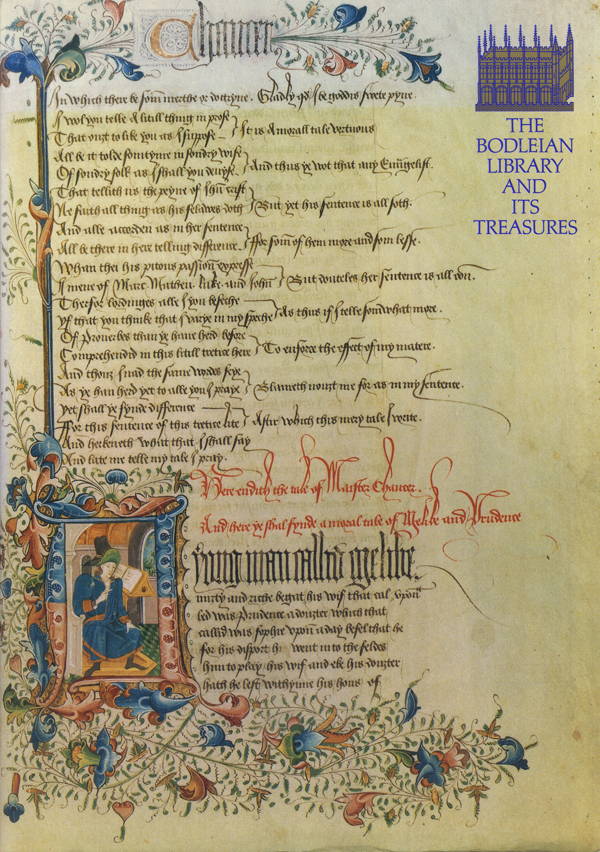 Chaucer
In which there be som merthe or doctryne . Gladly qd I be goddis swete pyne .
I wol you telle a litill thing in prose
That ouzt to like you as I suppose It is a morall tale vertuous
All be it tolde somtyme in sondry wise
Of sondry folk as I shall you devyse And thus ye wot that any Euungelist.
That tellith us the peyne of Ihu crist
Ne saith all thing as his felawes doth But yet his sentence is all soth.
And alle acorden as in her sentence
All be there in here telling difference ffor som of hem more and som lesse.
Whan thei his pitous passion expresse
I mene of Marc Matheu luke and Iohn But douteles her sentence is all oon.
Therfor lordinges alle I you beseche
Yf that you thinke that I varye in my speche As thus if I telle somwhat more.
Of Proverbes than ye haue herd before
Comprehendid in this litill tretice here To enforce the effect of my matere.
And thouz I nad the same wordes seye
As ye han herd yet to alle you I praye Blameth nouzt me for as in my sentence.
Yet shall ye fynde difference
ffor this sentence of this tretice lite Aftir which this mery tale I write.
And herkeneth what that I shall say
And late me telle my tale I pray.
Here endith the tale of Maister Chaucer.
And here ye shal fynde a moral tale of Melibe and Prudence
yong man callid Melibe
myzty and riche begat his wif that cal upon
led was Prudence a douzter which that
called was sophie upon a day befel that he
for his disport went in to the feldes
him to play his wif and eke his douzter
hath he left withynne his hous of
THE
BODLEIAN
LIBRARY
AND
ITS
TREASURES